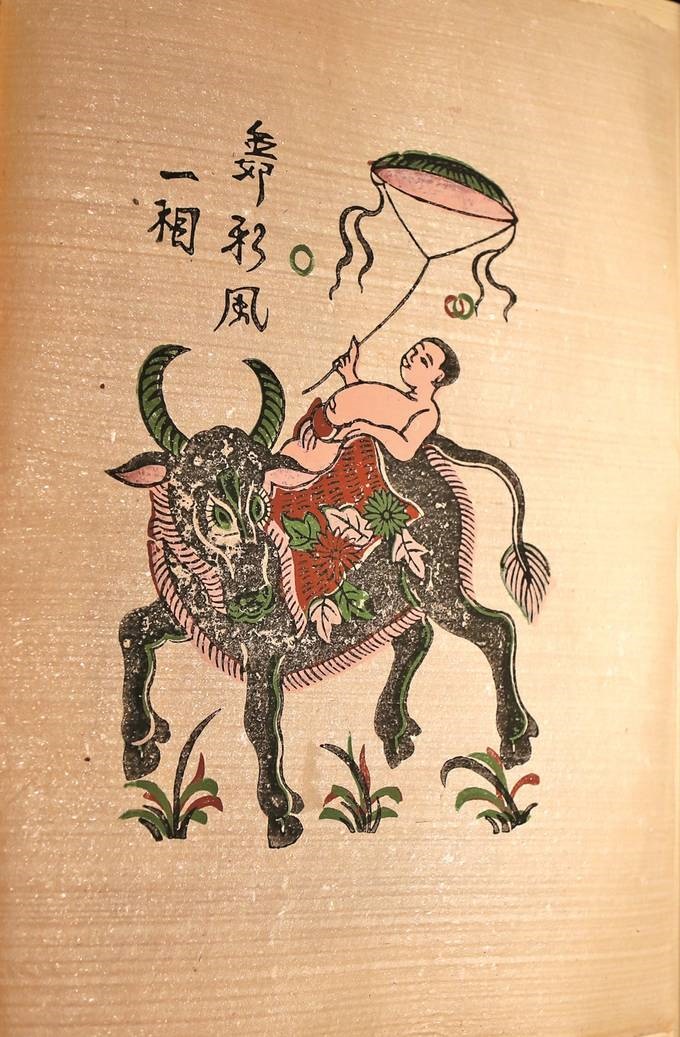 彩風
一相